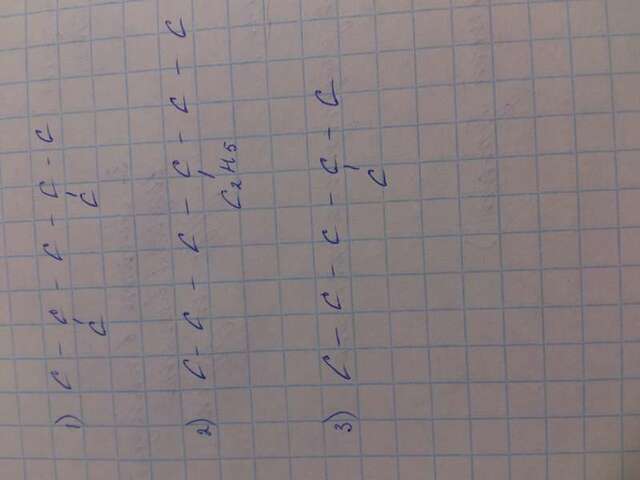 1) C - C - C - C - C
C C
2) C - C - C - C - C - C
C₂H₅
3) C - C - C - C - C
C